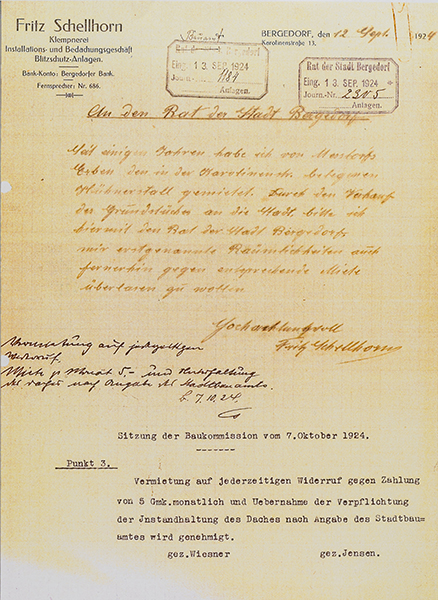 Fritz Schellhorn
Klempnerei
Installations- und Bedachungsgeschäft
Blitzschutz-Anlagen.
Bank-Konto: Bergedorfer Bank.
Fernsprecher Nr. 686.
BERGEDORF, den 12 Sept. 1924
Karolinenstraße 13.
Bauamt
Rat der Stadt Bergedorf
Eing. 13. SEP. 1924
Journ.-Nr. 1189
Anlagen.
Rat der Stadt Bergedorf
Eing. 13. SEP. 1924
Journ.-Nr. 2305
Anlagen.
An den Rat der Stadt Bergedorf
Seit einigen Jahren habe ich von Mendorfs
Erben den in der Karolinenstr. belegenen
Hühnerstall gemietet. Durch den Verkauf
des Grundstückes an die Stadt, bitte ich
hiermit den Rat der Stadt Bergedorf
mir erstgenannte Räumlichkeiten auch
fernerhin gegen entsprechende Miete
überlassen zu wollen
Hochachtungsvoll
Fritz Schellhorn
Vermietung auf jederzeitigen
Widerruf.
Miete p. Monat 5.- und Unterhaltung
des Daches nach Angabe des Stadtbauamts.
B. 7.10.24.
Sitzung der Baukommission vom 7.Oktober 1924.
-------
Punkt 3.
Vermietung auf jederzeitigen Widerruf gegen Zahlung
von 5 Gmk.monatlich und Uebernahme der Verpflichtung
der Jnstandhaltung des Daches nach Angabe des Stadtbau-
amtes wird genehmigt.
gez.Wiesner gez.Jensen.